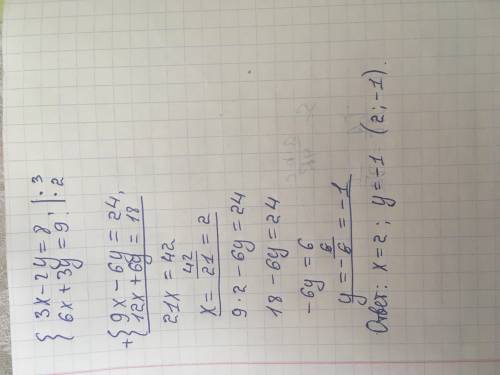 { 3x - 2y = 8, | · 3
6x + 3y = 9. | · 2
+ { 9x - 6y = 24,
12x + 6y = 18
21x = 42
x = 42/21 = 2
9 · 2 - 6y = 24
18 - 6y = 24
-6y = 6
y = - 6/6 = -1
Ответ: x = 2 ; y = -1 (2 ; -1).